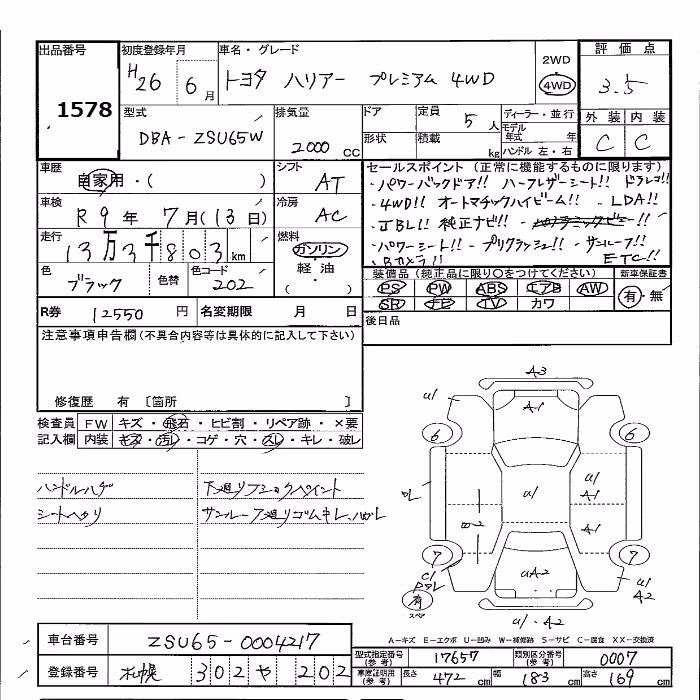 出品番号
1578
初度登録年月
H26 6月
車名・グレード
トヨタ ハリアー プレミアム 4WD
2WD
4WD
評価点
3.5
外装 内装
C C
型式
DBA-ZSU65W
排気量
2000 CC
ドア
形状
定員
5人
積載
kg
ディーラー・並行
モデル年式 年
ハンドル 左・右
車歴
自家用・( )
車検
R9年 7月(13日)
走行
13万3千803km
色
ブラック
色替
色コード
202
シフト
AT
冷房
AC
燃料
ガソリン
軽油
( )
セールスポイント(正常に機能するものに限ります)
・パワーバックドア!! ハーフレザーシート!! ドラレコ!!
・4WD!! オートマチックハイビーム!! ・LDA!!
・JBL!! 純正ナビ!!
・パワーシート!! ・プリクラッシュ!! ・サンルーフ!!
・Bカメラ!! ETC!!
装備品(純正品に限り〇をつけてください)
新車保証書
PS PW ABS エアB AW
SR ナビ TV カワ
有・無
R券 12550円
名変期限 月 日
後日品
注意事項申告欄(不具合内容等は具体的に記入して下さい)
修復歴 有 〔箇所 〕
検査員記入欄
FW キズ・飛石・ヒビ割・リペア跡・×要
内装 キズ・汚れ・コゲ・穴・スレ・キレ・破レ
ハンドルハゲ
シートヘタリ
下廻リフショクペイント
A3
U1
A1
6
6
U1
U1
A1
A1
7
7
UA2
U1
A2
C1
有
スペア
U1・A2
A-キズ E-エクボ U-凹み W-補修跡 S-サビ C-腐食 XX-交換済
車台番号
ZSU65-0004217
登録番号
札幌 302 や 202
型式指定番号(参考)
17657
類別区分番号(参考)
0007
車庫証明用(参考)
長さ 472cm
幅 183cm
高さ 169cm